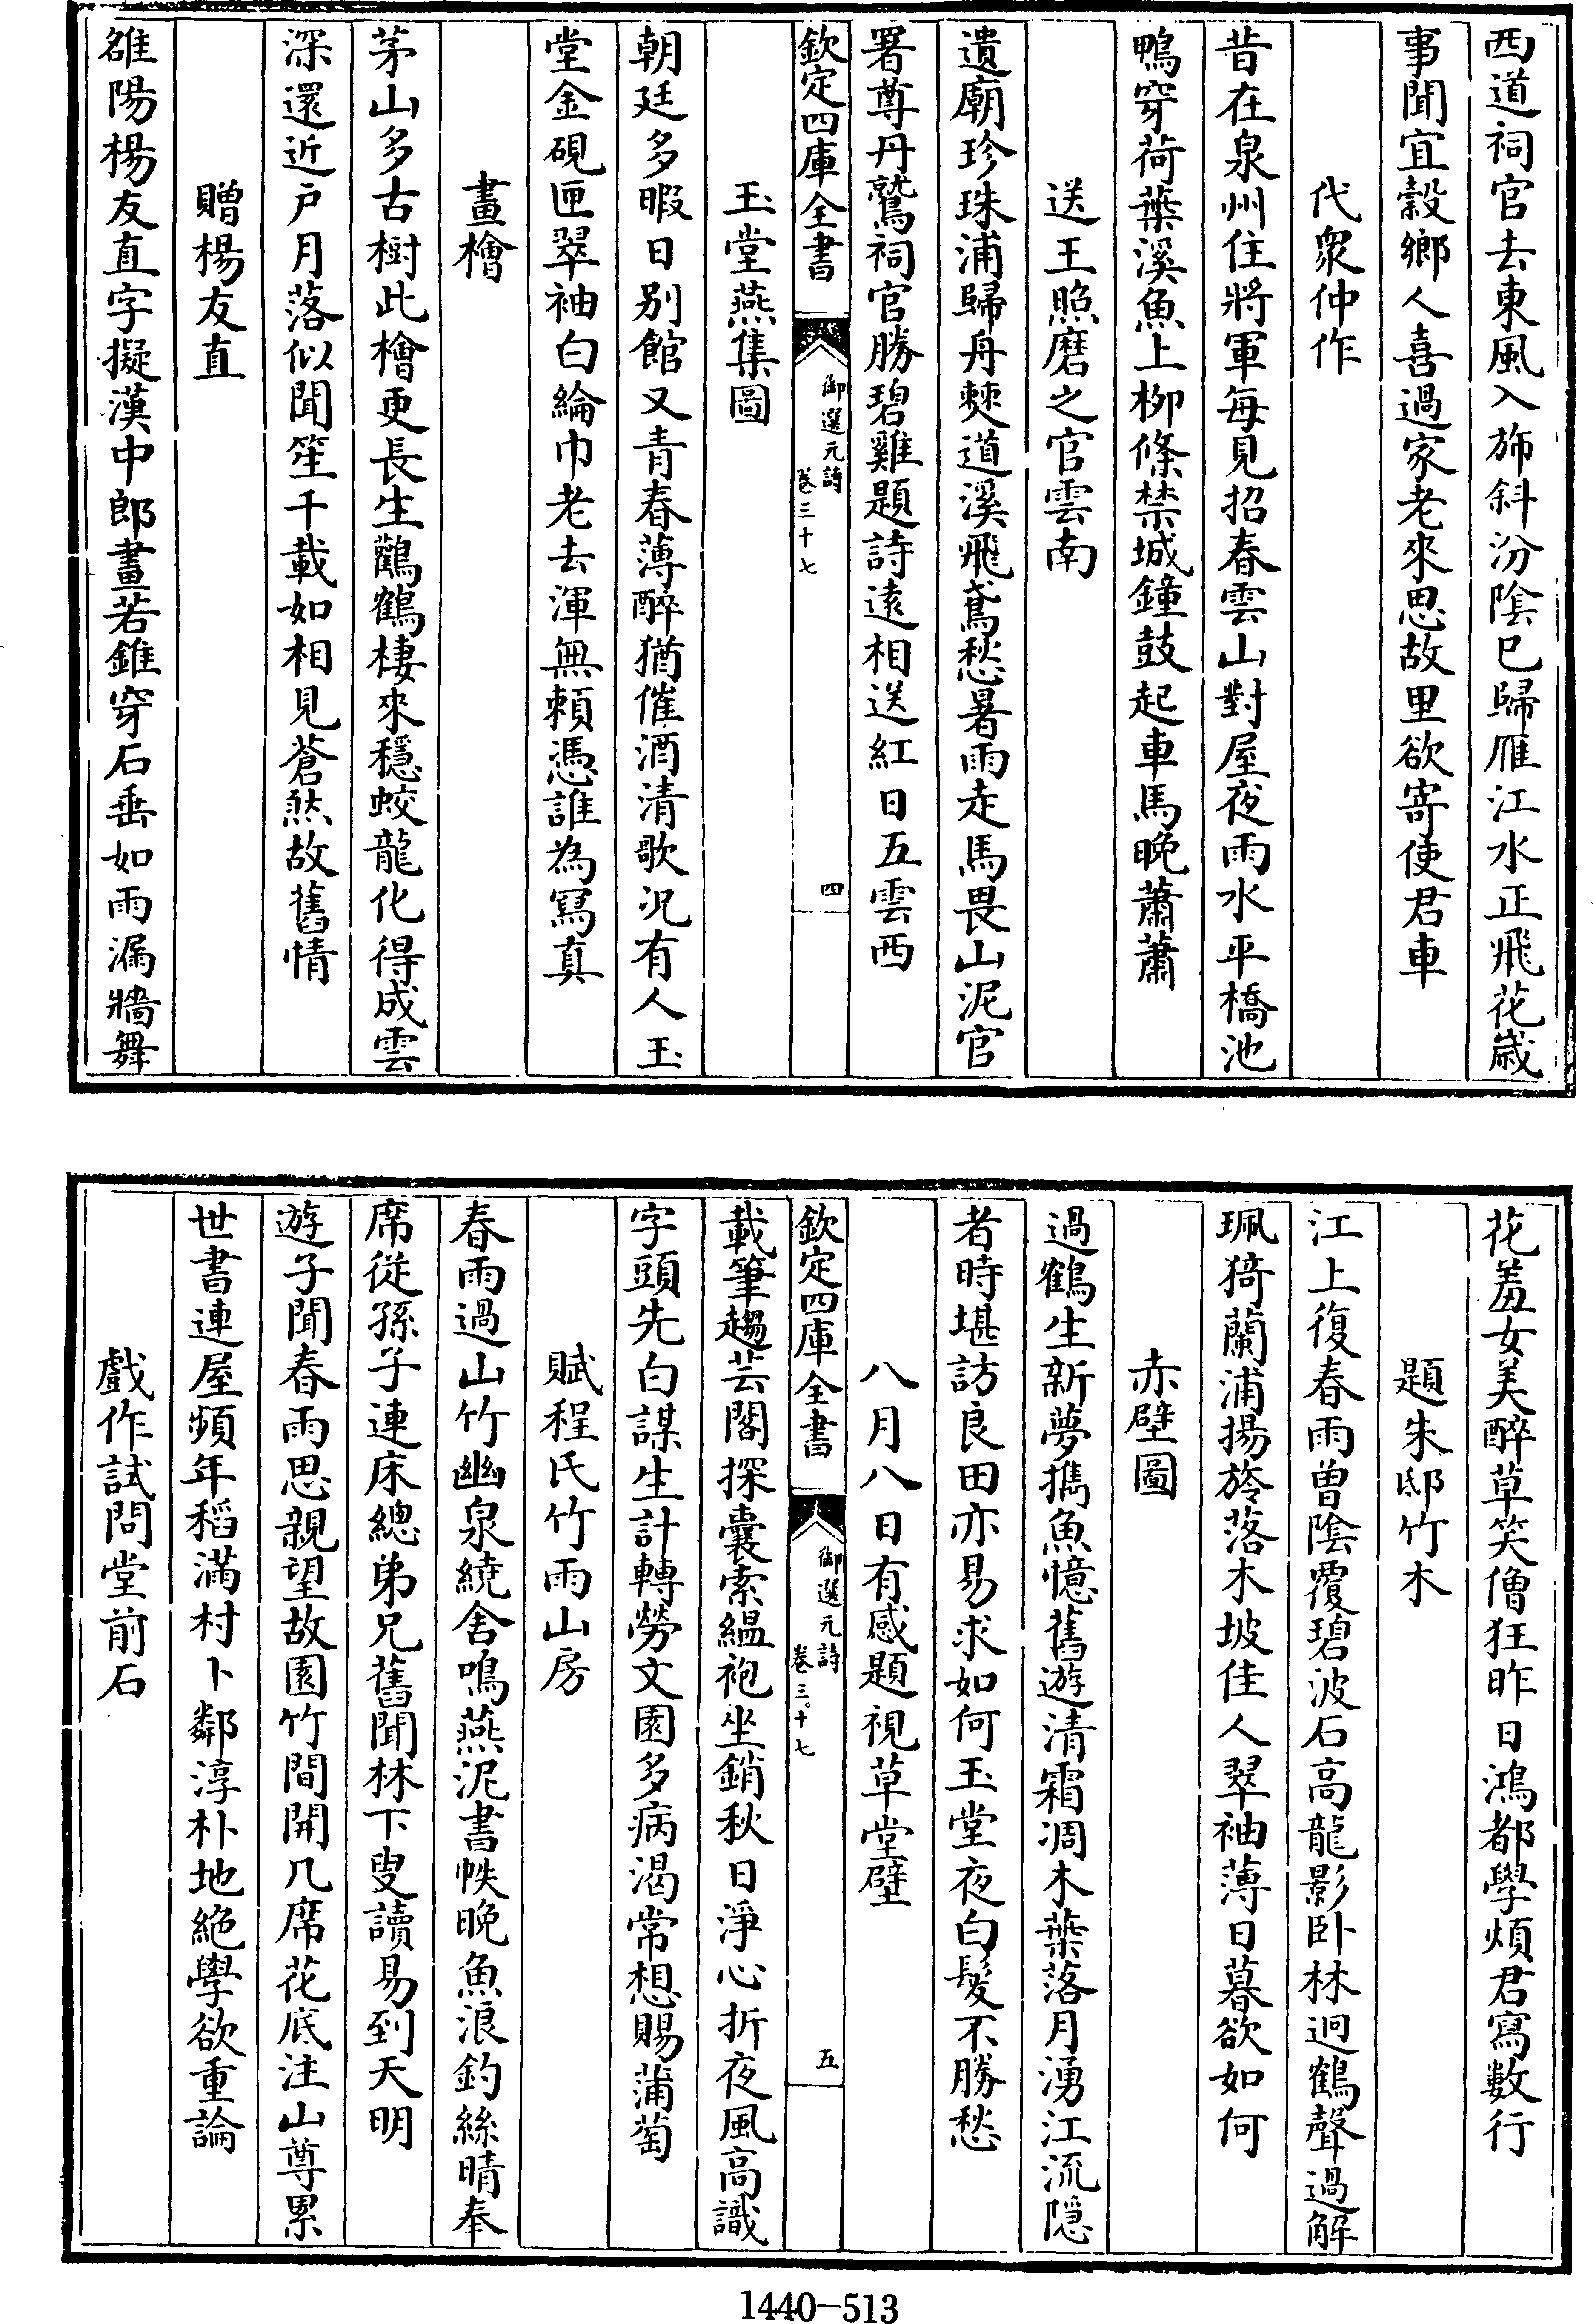 西道祠官去東風入斾斜汾陰已歸雁江水正飛花歲
事聞宜穀鄉人喜過家老來思故里欲寄使君車
代衆仲作
昔在泉州住將軍每見招春雲山對屋夜雨水平橋池
鴨穿荷葉溪魚上柳條禁城鐘鼓起車馬晚蕭蕭
送王照磨之官雲南
遺廟珍珠浦歸舟僰道溪飛鳶愁暑雨走馬畏山泥官
署尊丹鷲祠官勝碧雞題詩遠相送紅日五雲西
欽定四庫全書
御選元詩
卷三十七
四
玉堂燕集圖
朝廷多暇日别館又青春薄醉猶催酒清歌况有人玉
堂金硯匣翠袖白綸巾老去渾無頼憑誰為寫真
畫檜
茅山多古樹此檜更長生鸛鶴棲來穩蛟龍化得成雲
深還近户月落似聞笙千載如相見蒼然故舊情
贈楊友直
雒陽楊友直字擬漢中郎畫若錐穿石垂如雨漏牆舞
花羞女美醉草笑僧狂昨日鴻都學煩君寫數行
題朱邸竹木
江上復春雨曽陰覆碧波石高龍影卧林迥鶴聲過解
珮猗蘭浦揚旍落木坡佳人翠袖薄日暮欲如何
赤壁圖
過鶴生新夢攜魚憶舊遊清霜凋木葉落月湧江流隠
者時堪訪良田亦易求如何玉堂夜白髮不勝愁
八月八日有感題視草堂壁
欽定四庫全書
御選元詩
卷三十七
五
載筆趨芸閣探囊索緼袍坐銷秋日淨心折夜風高識
字頭先白謀生計轉勞文園多病渴常想賜蒲萄
賦程氏竹雨山房
春雨過山竹幽泉繞舍鳴燕泥書帙晚魚浪釣絲晴奉
席從孫子連床總弟兄舊聞林下叟讀易到天明
遊子聞春雨思親望故園竹間開几席花底注山尊累
世書連屋頻年稻滿村卜鄰淳朴地絶學欲重論
戲作試問堂前石
1440-513